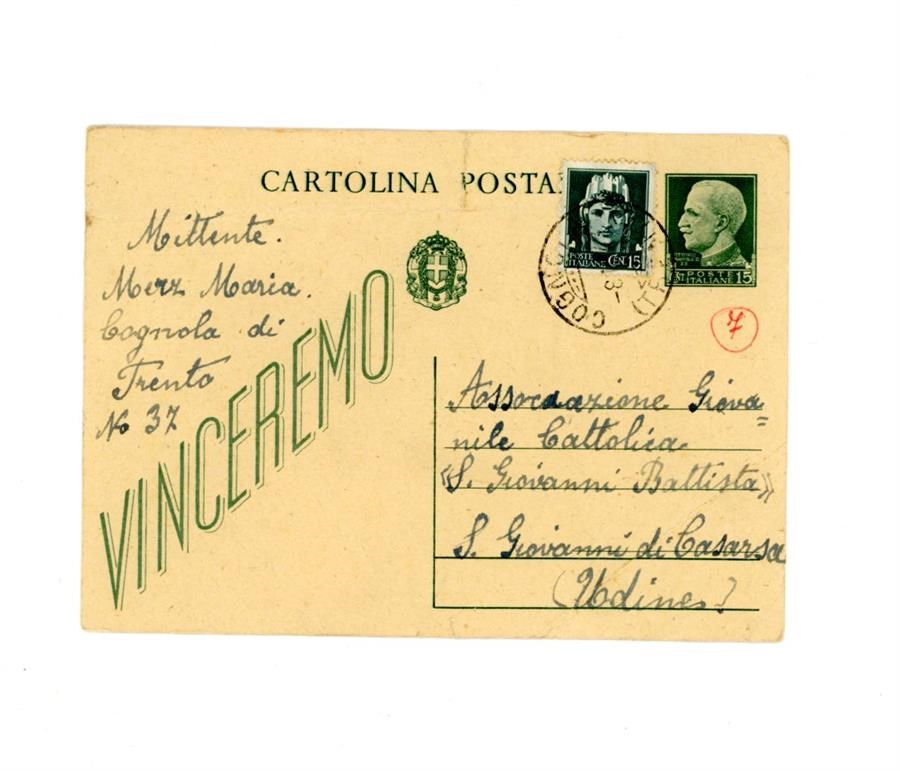 CARTOLINA POSTA
POSTE
ITALIANE CEN. 15
POSTE
ITALIANE 15
COGNOLA
7
Mittente.
Merz Maria.
Cognola di
Trento
No 37
VINCEREMO
Associazione Giova=
nile Cattolica
«S. Giovanni Battista»
S. Giovanni di Casarsa
(Udine)